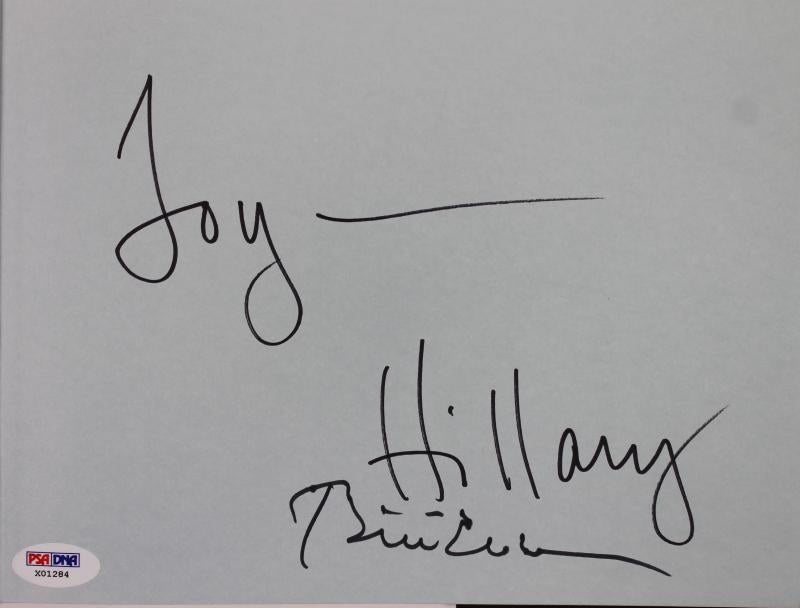 Joy —
Hillary
Bill Clinton
PSA DNA
X01284